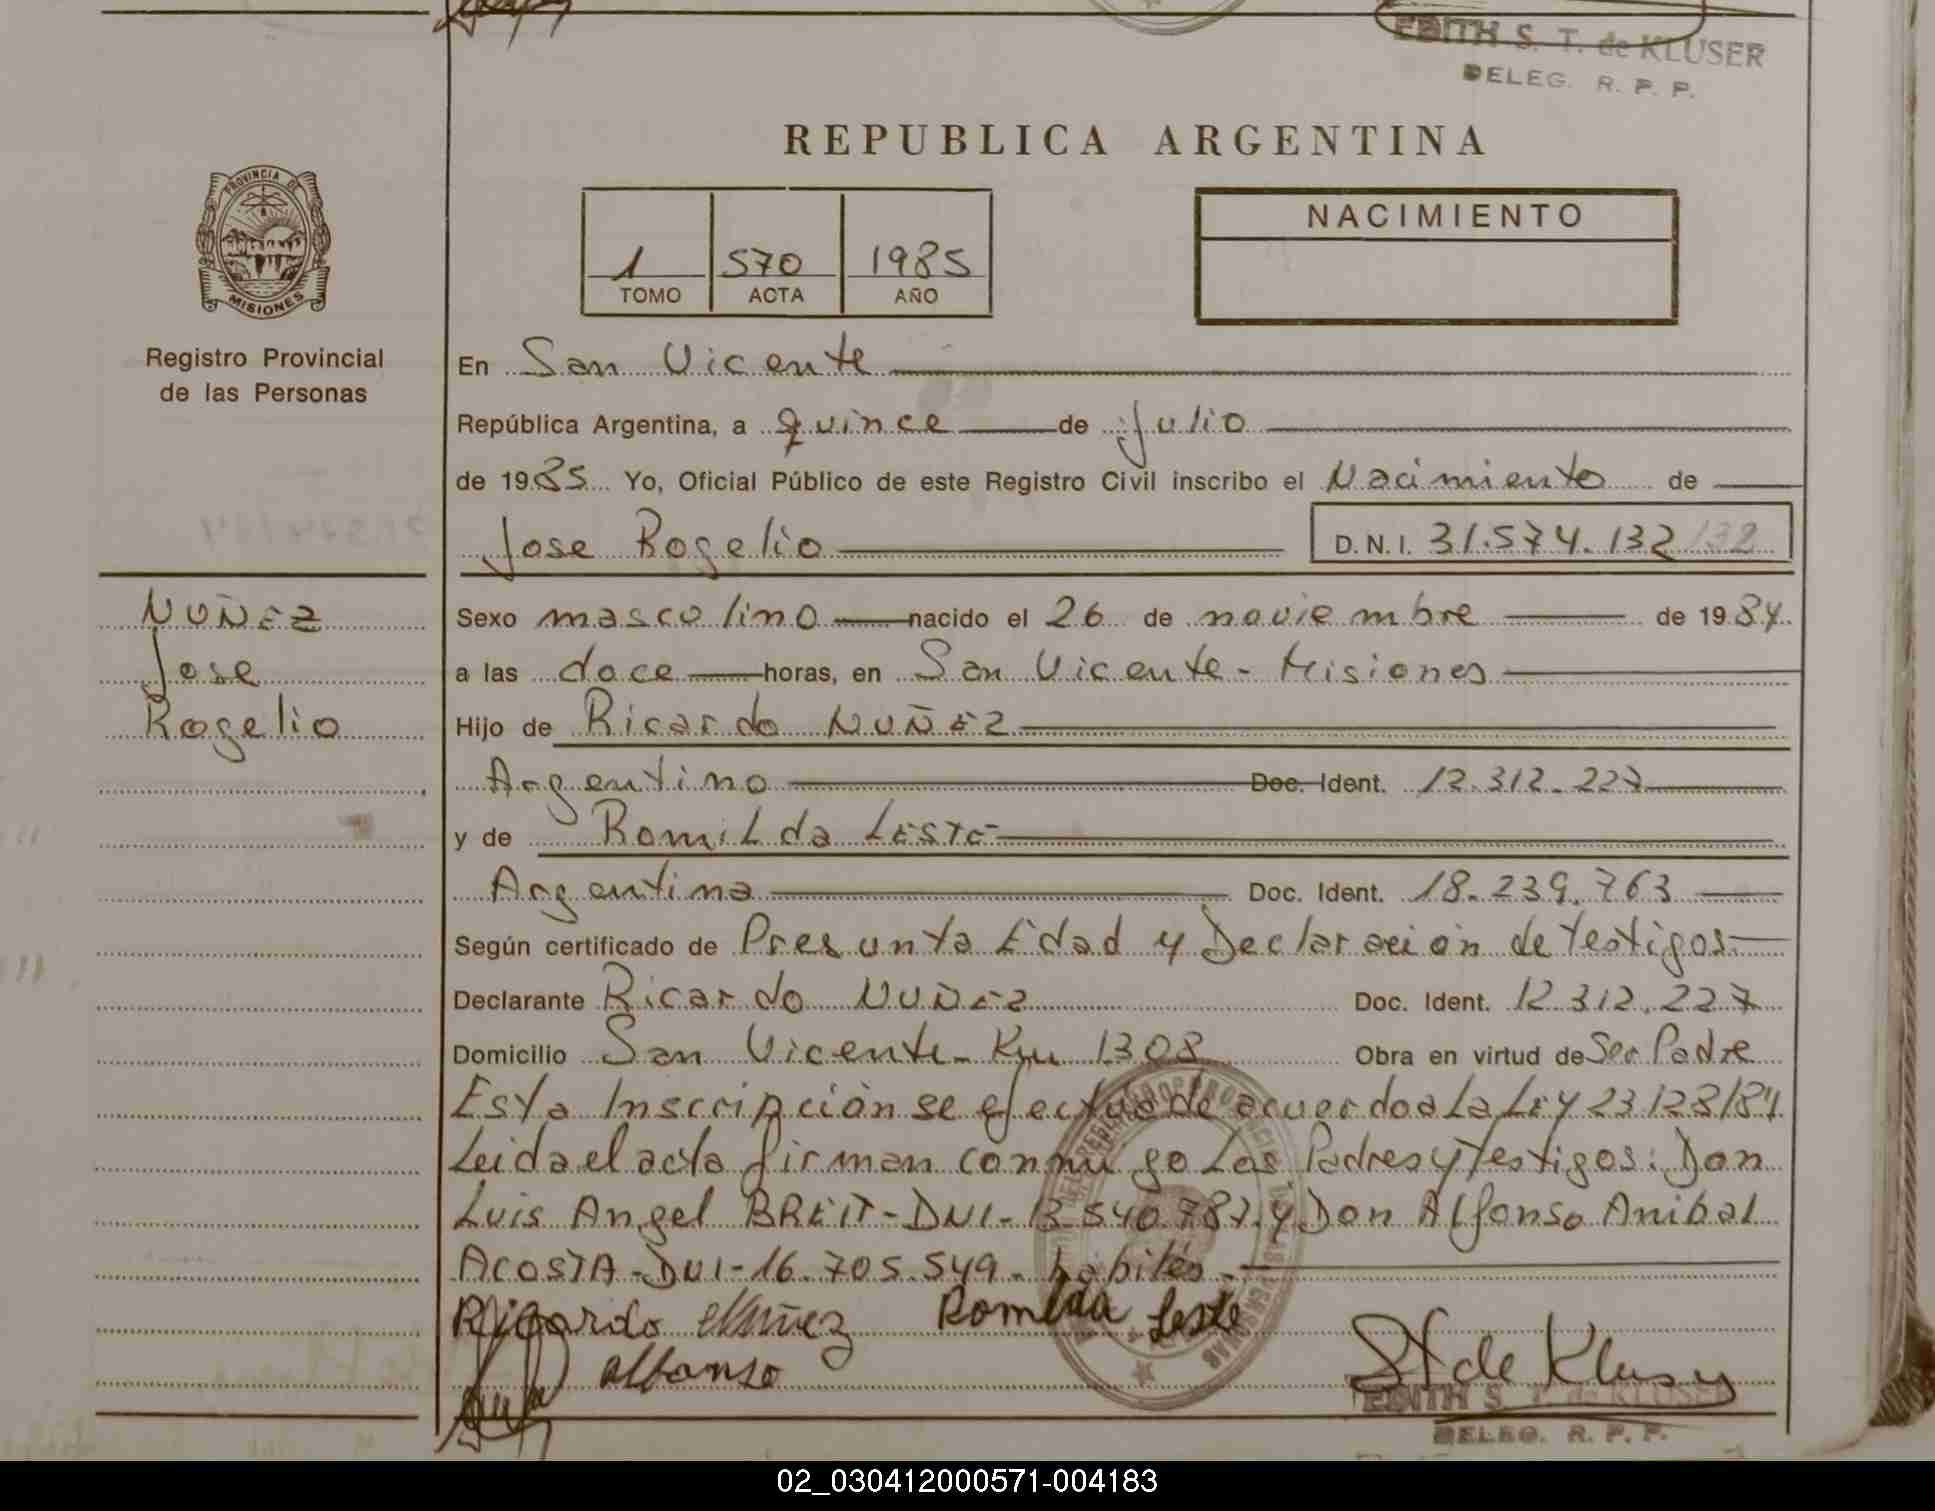 EDITH S. T. de KLUSER
DELEG. R. P. P.
REPUBLICA ARGENTINA
PROVINCIA DE
MISIONES
Registro Provincial
de las Personas
1 570 1985
TOMO ACTA AÑO
NACIMIENTO
En San Vicente
República Argentina, a quince de julio
de 1985 Yo, Oficial Público de este Registro Civil inscribo el Nacimiento de
Jose Rogelio D.N.I. 31.574.132 132
NUÑEZ
Jose
Rogelio
Sexo mascolino nacido el 26 de noviembre de 1984.
a las doce horas, en San Vicente - Misiones
Hijo de Ricardo NUÑEZ
Argentino Doc. Ident. 12.312.227
y de Romilda LESTE
Argentina Doc. Ident. 18.239.763
Según certificado de Presunta Edad y Declaración de testigos.
Declarante Ricardo NUÑEZ Doc. Ident. 12.312.227
Domicilio San Vicente - Km 1308 Obra en virtud de Ser Padre
Esta Inscripción se efectua de acuerdo a La LEY 23128/84
Leida el acta firman conmigo Los Padres y Testigos: Don
Luis Angel BREIT - DNI - 13.540.787. y Don Alfonso Anibal
ACOSTA - DNI - 16.705.549. habiles.
Ricardo Nuñez Romilda Leste
Alfonso
ST de Kluser
EDITH S. T. de KLUSER
DELEG. R. P. P.
02_030412000571-004183